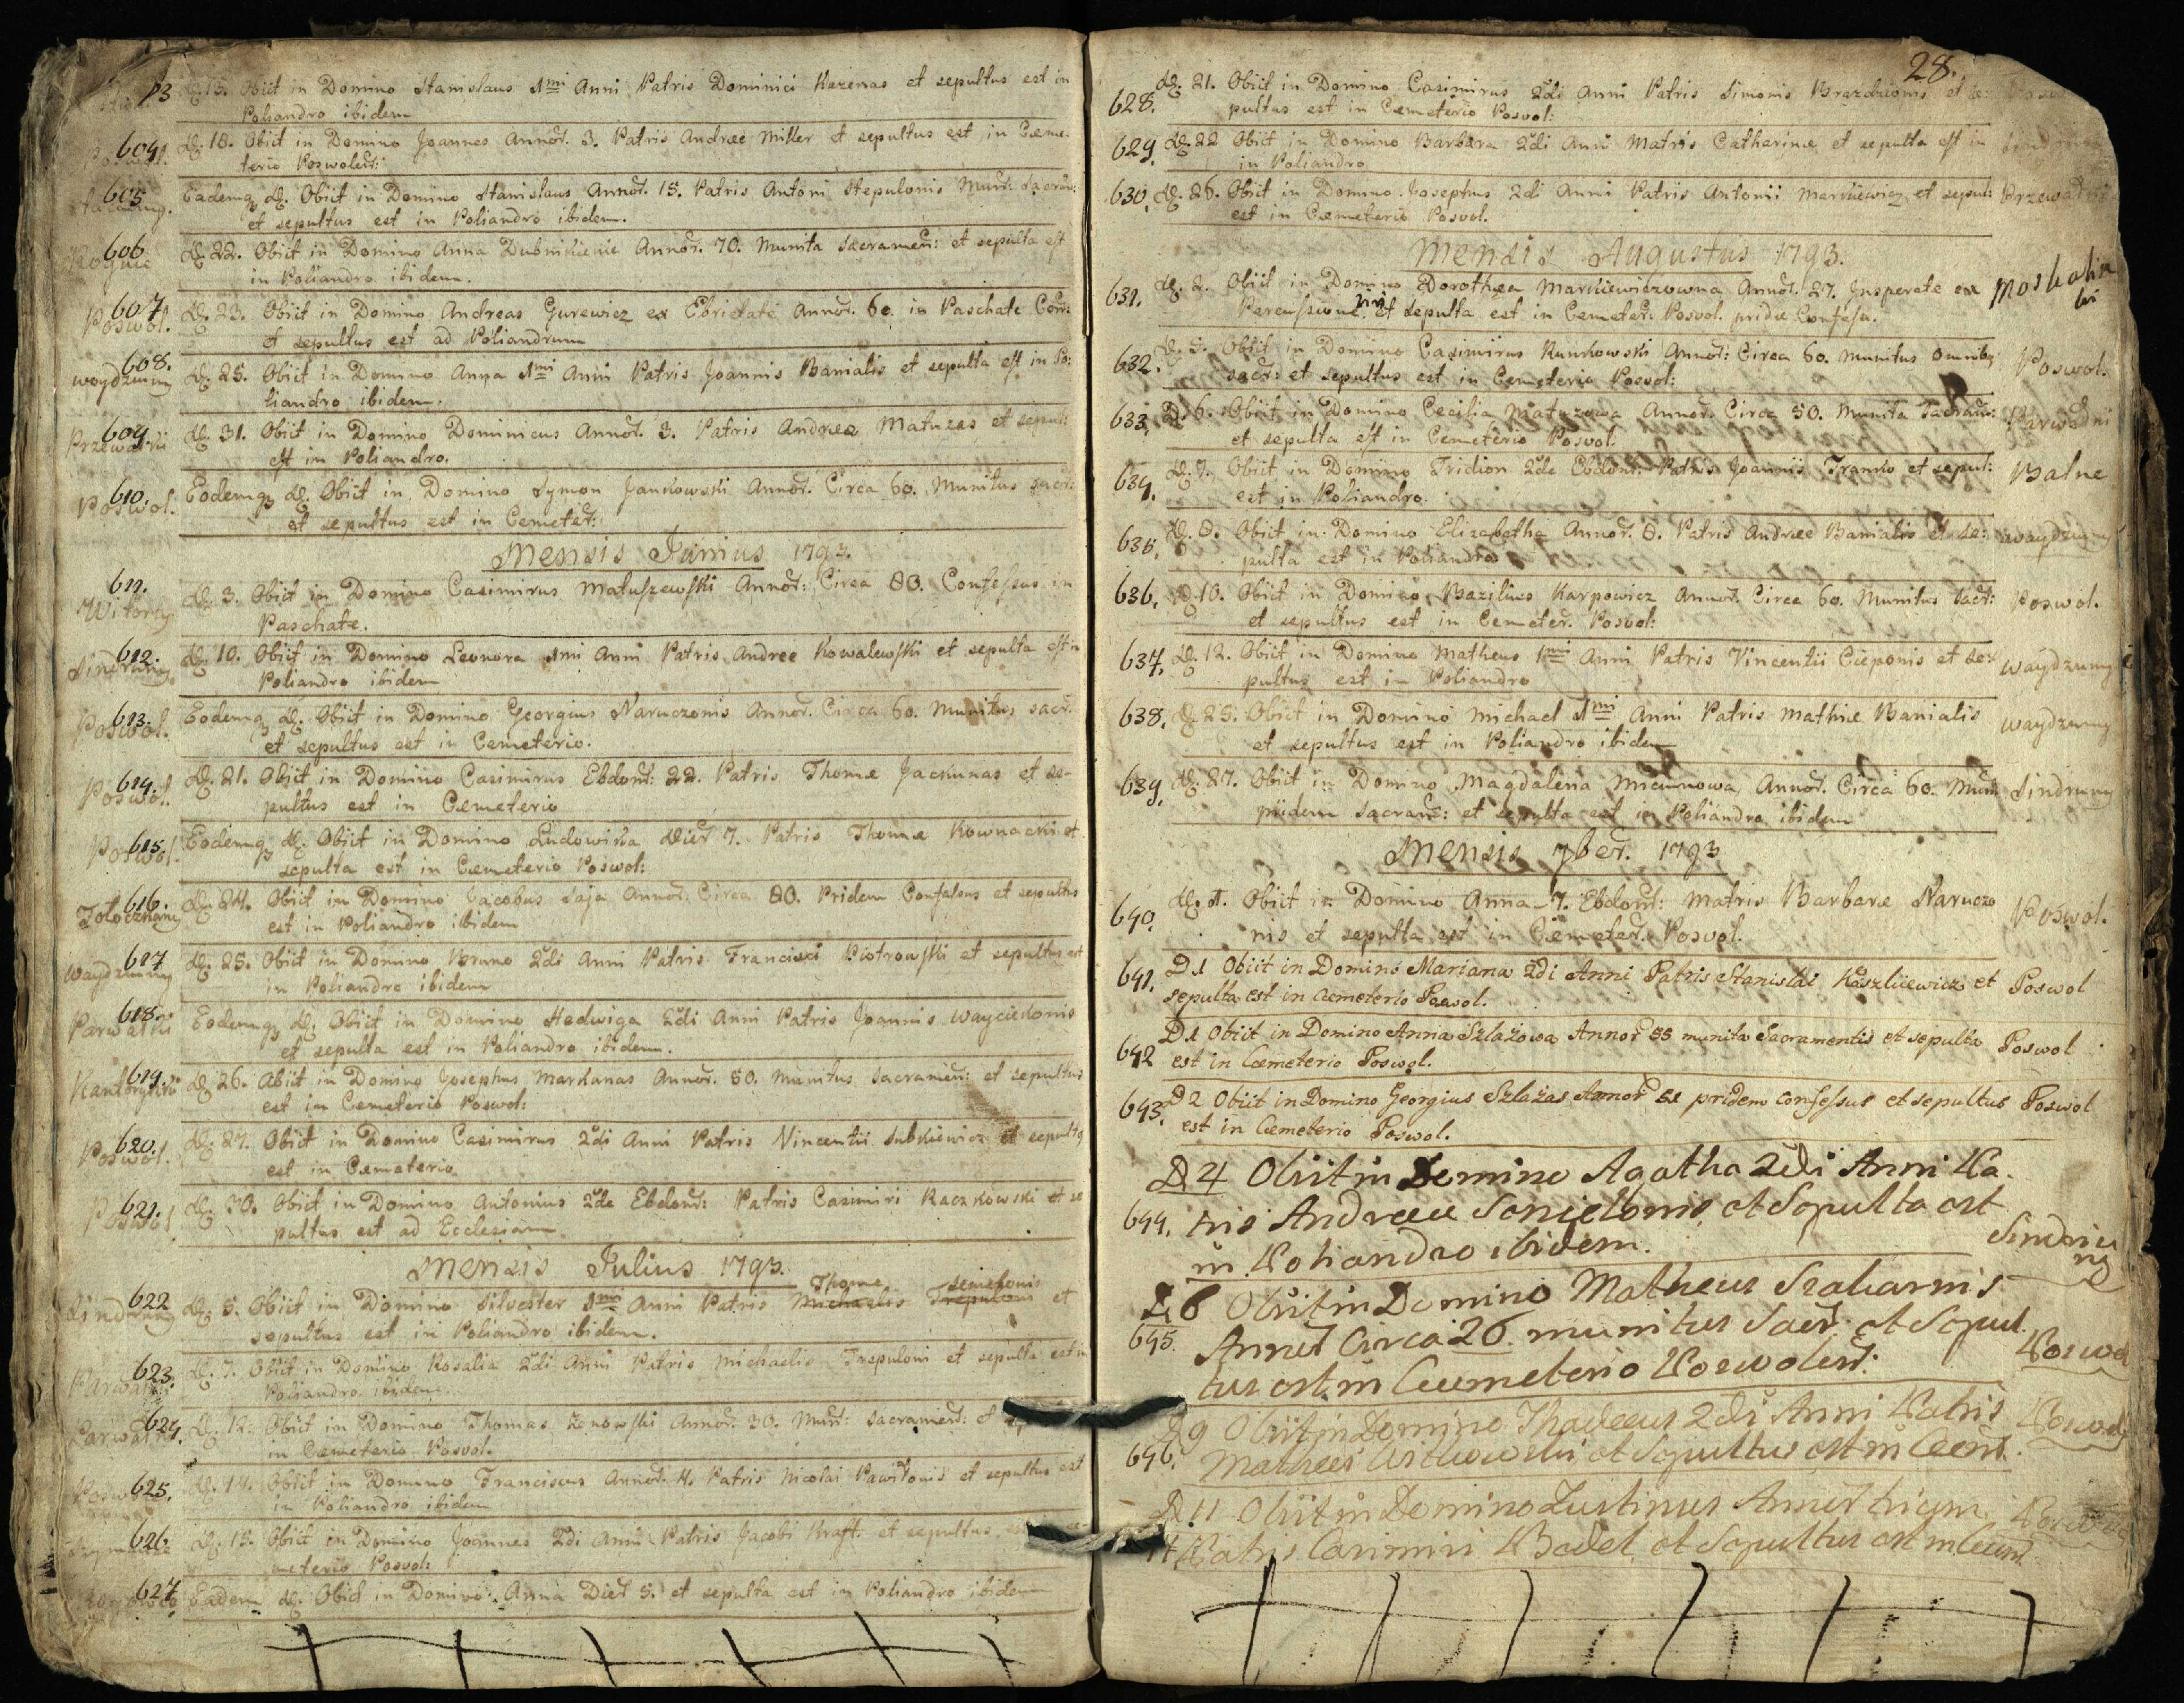 D. 13. Obiit in Domino Stanislaus 1mi Anni Patris Dominici Kazenas et sepultus est in
Poliandro ibidem
604. D. 18. Obiit in Domino Joannes Annor. 3. Patris Andreæ Miller et sepultus est in Cæme-
terio Poswolen:
605 Eademq D. Obiit in Domino Stanislaus Annor. 15. Patris Antoni Stepulonis Munit: Sacram:
et sepultus est in Poliandro ibidem.
606 D. 22. Obiit in Domino Anna Dubnikienie Annor. 70. Munita Sacramen: et sepulta est
in Poliandro ibidem.
607 Poswol. D. 23. Obiit in Domino Andreas Gurewicz ex Ebrietate Annor. 60. in Paschate Con:
et sepultus est ad Poliandrum
608. Woydzuny D. 25. Obiit in Domino Anna 1mi Anni Patris Joannis Banialis et sepulta est in Po:
liandro ibidem.
609. D. 31. Obiit in Domino Dominicus Annor. 3. Patris Andrea Matuzas et sepul:
est in Poliandro.
610. Poswol. Eodemq D. Obiit in Domino Symon Jankowski Annor. Circa 60. Munitus sacr:
et sepultus est in Cemeter:
Mensis Junius 1793.
611. D. 3. Obiit in Domino Casimirus Matuszewski Annor: Circa 80. Confessus in
Paschate.
612. D. 10. Obiit in Domino Leonora 1mi Anni Patris Andree Kowalewski et sepulta est in
Poliandro ibidem
613. Poswol. Eodemq D. Obiit in Domino Georgius Naruczonis Annor. Circa 60. Munitus sacr.
et sepultus est in Cemeterio.
614. Poswol. D. 21. Obiit in Domino Casimirus Ebdom: 22. Patris Thomæ Jackunas et se-
pultus est in Cemeterio
615. Poswol. Eodemq D. Obiit in Domino Ludowika Dier 7. Patris Thomæ Kownacki et
sepulta est in Cæmeterio Poswol:
616. D. 24. Obiit in Domino Jacobus Saja Annor. Circa 80. Pridem Confessus et sepultus
est in Poliandro ibidem
617 Waydzuny D. 25. Obiit in Domino Bruno 2di Anni Patris Francisci Piotrowski et sepultus est
in Poliandro ibidem
618. Eodemq D. Obiit in Domino Hedwiga 2di Anni Patris Joannis Wayciekonis
et sepulta est in Poliandro ibidem.
619. D. 26. Obiit in Domino Josephus Markunas Annor. 50. Munitus sacramen: et sepultus
est in Cemeterio Poswol:
620. Poswol. D. 27. Obiit in Domino Casimirus 2di Anni Patris Vincentii Subkiewicz et sepultq
est in Cæmeterio
621. Poswol D. 30. Obiit in Domino Antonius 2da Ebdom: Patris Casimiri Raczkowski et se
pultus est ad Ecclesiam
Mensis Julius 1793.
Thome Semekonis
622 D. 5. Obiit in Domino Silvester 1mi Anni Patris Michaelis Trepuloni et
sepultus est in Poliandro ibidem.
623. D. 7. Obiit in Domino Rosalia 2di Anni Patris Michaelis Trepuloni et sepulta est in
Poliandro ibidem
624. D. 12. Obiit in Domino Thomas Zenowski Annor. 30. Munit: sacramen: et
in Cæmeterio Posvol.
625. D. 14. Obiit in Domino Franciscus Annor. 4. Patris Nicolai Pawilonis et sepultus est
in Poliandro ibidem
626. D. 15. Obiit in Domino Joannes 2di Anni Patris Jacobi Kraft. et sepultus
meterio Posvol:
627. Eadem D. Obiit in Domino Anna Dier 5. et sepulta est in Poliandro ibidem
28.
628. D. 21. Obiit in Domino Casimirus 2di Anni Patris Simonis Brazdzionis et se:
pultus est in Cæmeterio Posvol:
629. D. 22 Obiit in Domino Barbara 2di Anni Matris Catharinæ et sepulta est in
in Poliandro
630. D. 26. Obiit in Domino Josephus 2di Anni Patris Antonii Markiewicz et sepul:
est in Cæmeterio Posvol.
Mensis Augustus 1793.
631. D. 2. Obiit in Domino Dorothea Markiewiczowna Annor. 27. Insperate ex
Percussione viri et sepulta est in Cemeter: Posvol. pridie Confessa.
632. D. 5. Obiit in Domino Casimirus Kunkowski Annor: Circa 60. Munitus omnibq Poswol.
sacr: et sepultus est in Cemeterio Posvol:
633. D. 6. Obiit in Domino Cecilia Matuzowa Annor. Circa 50. Munita Sacram:
et sepulta est in Cemeterio Posvol.
634. D. 7. Obiit in Domino Fridion 2da Ebdom: Patris Joannis Franko et sepul: Balne
est in Poliandro.
635. D. 8. Obiit in Domino Elizabetha Annor. 8. Patris Andreæ Banialis et se: Waydzuny
pulta est in Poliandro
636. D. 10. Obiit in Domino Bazilius Karpowicz Annor. Circa 60. Munitus sacr: Poswol.
et sepultus est in Cemeter. Posvol:
637. D. 12. Obiit in Domino Matheus 1mi Anni Patris Vincentii Cieponis et se: Waydzuny
pultus est in Poliandro
638. D. 25. Obiit in Domino Michael 1mi Anni Patris Mathiæ Banialis Waydzuny
et sepultus est in Poliandro ibidem
639. D. 27. Obiit in Domino Magdalena Micunowa Annor. Circa 60. Mun: Sindziuny
pridem sacram: et sepulta est in Poliandro ibidem
Mensis 7ber. 1793
640. D. 1. Obiit in Domino Anna 7. Ebdom: Matris Barbaræ Naruczo Poswol.
nis et sepulta est in Cæmeter. Posvol.
641. D 1 Obiit in Domino Mariana 2di Anni Patris Stanislai Kaszkiewicz et Poswol
sepulta est in Cæmeterio Poswol.
642 D 1 Obiit in Domino Anna Szlażowa Annor 55 munita Sacramentis et sepulta Poswol
est in Cæmeterio Poswol.
643. D 2 Obiit in Domino Georgius Szlażas Annor 51 pridem confessus et sepultus Poswol
est in Cæmeterio Poswol.
D. 4 Obiit in Domino Agatha 2di Anni Pa-
644. tris Andreæ et Sepulta est
in Poliandro ibidem.
D. 6 Obiit in Domino Matheus
645. Annor Circa 26. munitus Sacr. et Sepul
tus est in Cæmeterio Poswolen:
D. 9 Obiit in Domino Thadeus 2di Anni Patris
646. Mathæi et Sepultus est in Cæm.
D. 11 Obiit in Domino Justinus Annor trium
Patris Casimiri et Sepultus est in Cæm.